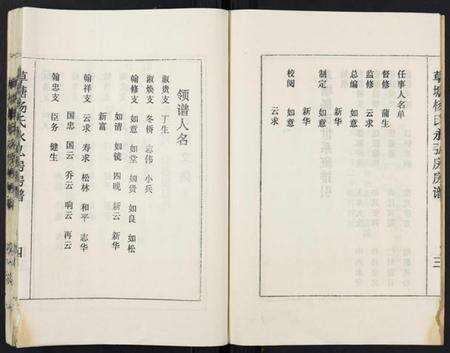 草塘杨氏永弘房房谱
三
任事人名单
督修 蒲生
监修 云求
总编 如意
新华
制定 如意
新华
校阅 如意
云求
领谱人名
淑贵支 丁生
淑焕支 冬桥 志伟 小兵
翰修支 如意 如堂 如贵 如良 如松
如清 如镜 四晚 新云 新华
新富
翰祥支 云求 寿求 松林 和平 志华
国忠 国云 乔云 响云 再云
翰忠支 臣务 健生
草塘杨氏永弘房房谱
四